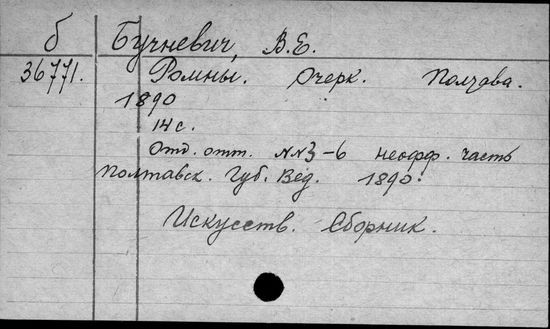 б Бучневич, В.Е.
36771. Ромны. Очерк. Полтава.
1890
14 с.
Отд. отт. NN3-6 неофф. часть
Полтавск. Губ. Вед. 1890.
Искусств. Сборник.